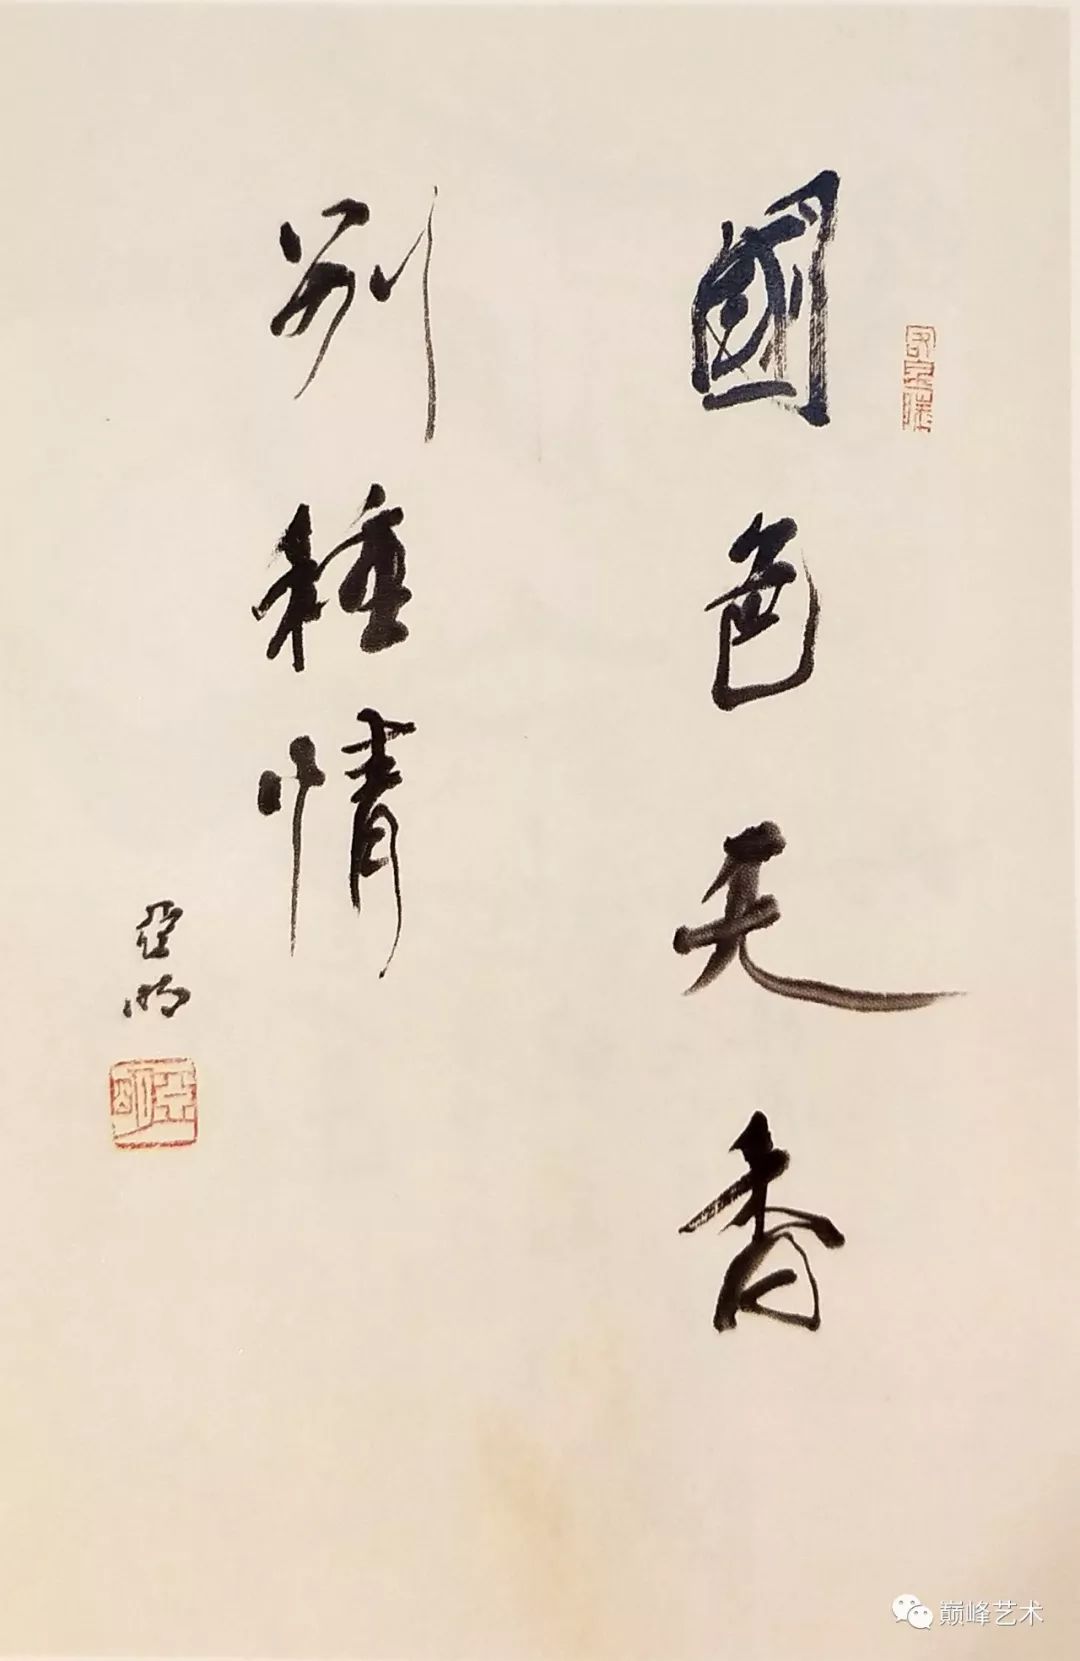 國色天香
別種情
亞明
亞明
巅峰艺术